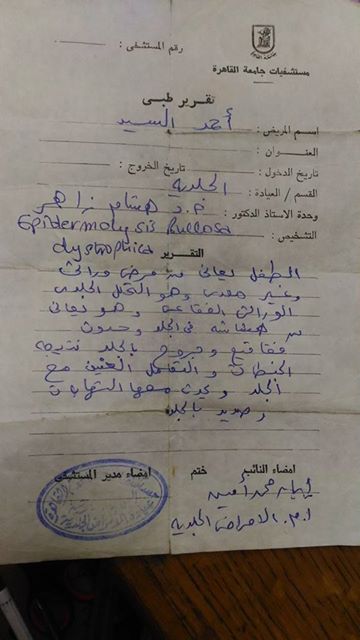 مستشفيات جامعة القاهرة
رقم المستشفى :
تقرير طبى
اسم المريض : أحمد السيد
العنوان :
تاريخ الدخول : تاريخ الخروج :
القسم / العيادة : الجلدية
وحدة الاستاذ الدكتور : أ.د هشام زاهر
التشخيص : Epidermolysis Bullosa
dystrophica
التقرير
الطفل يعانى من مرض وراثى
وغير معدى وهو التحلل الجلدى
الوراثى الفقاعى وهو يعانى
من هشاشه فى الجلد وحدوث
فقاقيع وجروح بالجلد نتيجه
الخبطات والتعامل العنيف مع
الجلد ويحدث معها التهابات
وصديد بالجلد
امضاء النائب ختم امضاء مدير المستشفى
محمد أمين
الامراض الجلدية